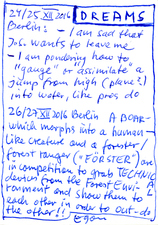 24/25. XII 2016 DREAMS
Berlin: - I am sad that
Jos. wants to leave me
- I am pondering how to
"gauge" or "assimilate" a
jump from high (plane!)
into water, like pros do
26/27. XII 2016 Berlin A BOAR
which morphs into a human-
like creature and a forester/
forest ranger ("FÖRSTER") are
in competition to grab TECHNICAL
devices from the Forest Envi-
ronment and show them to
each other in order to out-do
the other!!